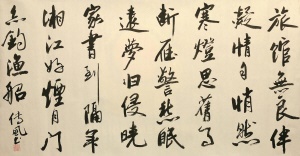 旅館無良伴
凝情自悄然
寒燈思舊事
斷雁警愁眠
遠夢歸侵曉
家書到隔年
湘江好煙月門
繫釣漁船